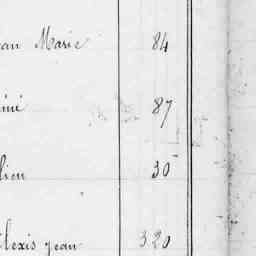 an Marie 84
ini 87
lien 30
Alexis Jean 320